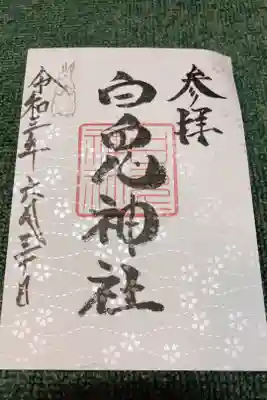 参拝
白兎神社
令和三年 六月三十日